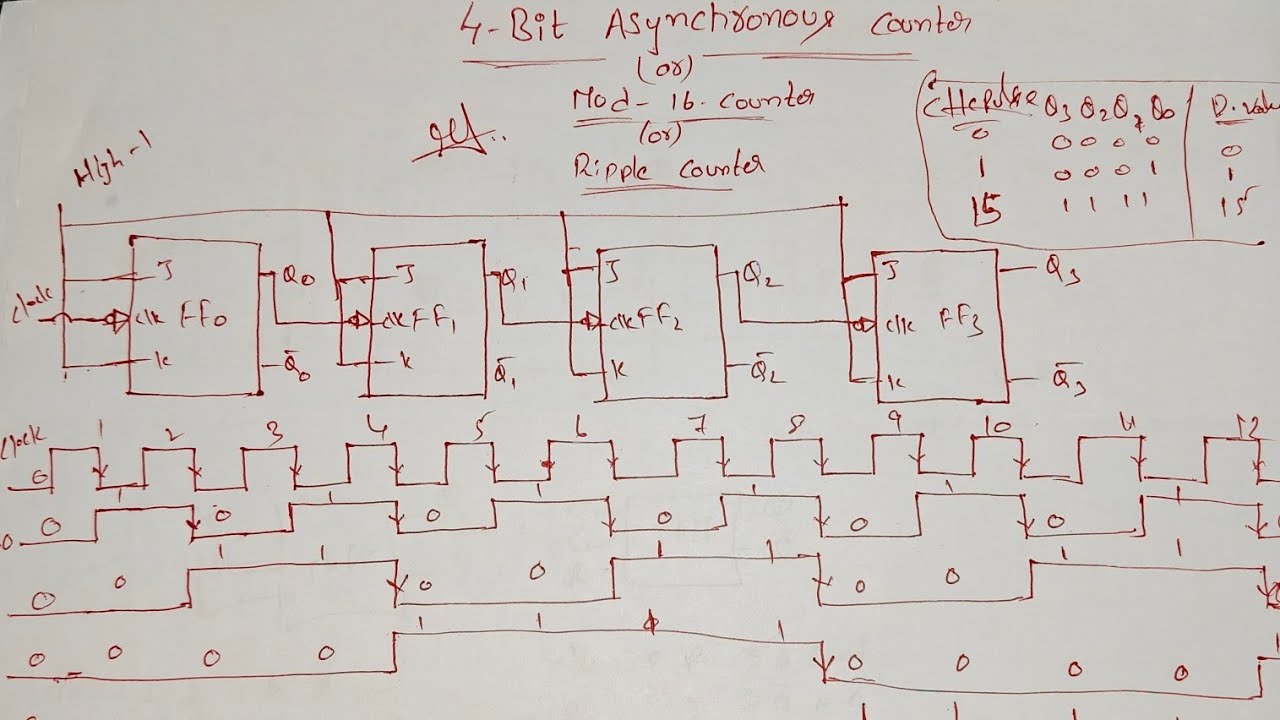 4-Bit Asynchronous Counter
(or)
Mod-16 counter
(or)
Ripple counter
High-1
Q3 Q2 Q1 Q0
0 0 0 0 0 0
1 0 0 0 1 1
15 1 1 1 1 15
J Q0 J Q1 J Q2 J Q3
Clock clk FF0 clk FF1 clk FF2 clk FF3
K Q̄0 K Q̄1 K Q̄2 K Q̄3
Clock 1 2 3 4 5 6 7 8 9 10 11 12
0
1 1 1 1 1 1
0 0 0 0 0 0
1 1 1 1 1 1
0 0 0 0 0 0
1 1 1 1
0 0 0 0 0 0 0 0